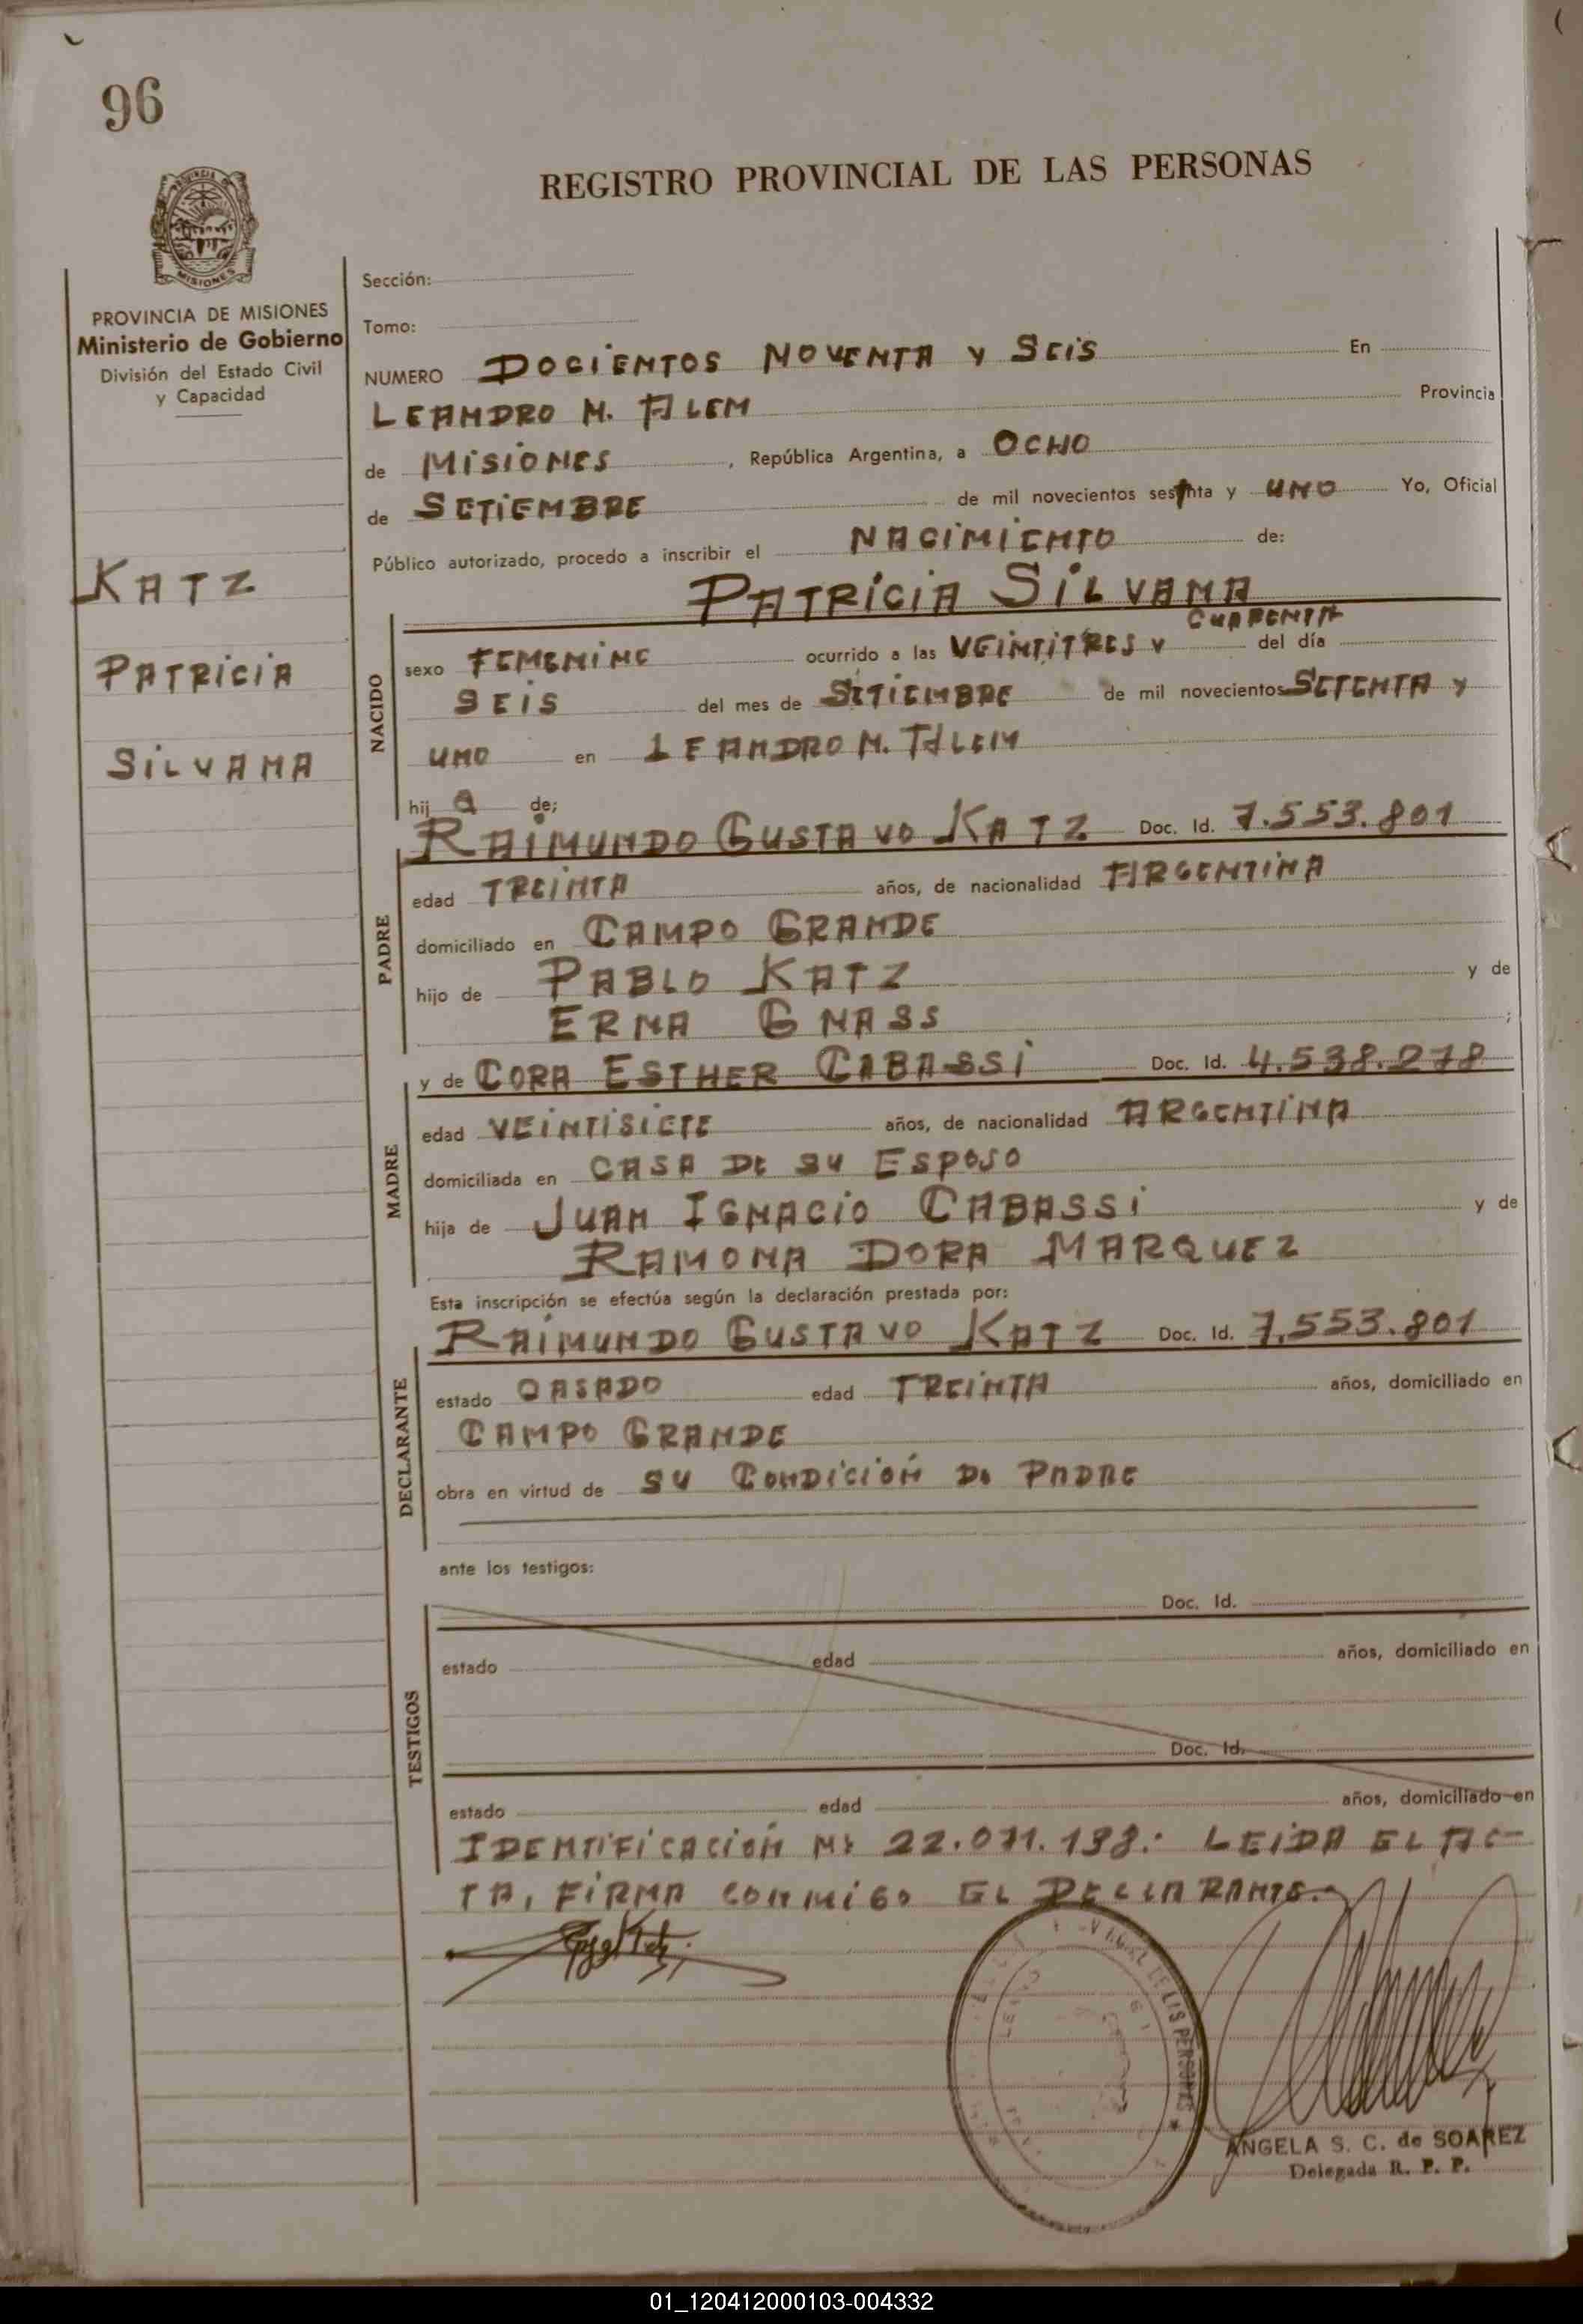 96
REGISTRO PROVINCIAL DE LAS PERSONAS
MISIONES
PROVINCIA DE MISIONES
Ministerio de Gobierno
División del Estado Civil
y Capacidad
KATZ
PATRICIA
SILVANA
Sección:
Tomo:
NUMERO DOCIENTOS NOVENTA Y SEIS En
LEANDRO N. ALEM Provincia
de MISIONES, República Argentina, a OCHO
de SETIEMBRE de mil novecientos setenta y UNO Yo, Oficial
Público autorizado, procedo a inscribir el NACIMIENTO de:
PATRICIA SILVANA
NACIDO
sexo FEMENINO ocurrido a las VEINTITRES Y CUARENTA del día
SEIS del mes de SETIEMBRE de mil novecientos SETENTA Y
UNO en LEANDRO N. ALEM
hij a de;
RAIMUNDO GUSTAVO KATZ Doc. Id. 7.553.801
PADRE
edad TREINTA años, de nacionalidad ARGENTINA
domiciliado en CAMPO GRANDE
hijo de PABLO KATZ y de
ERNA GNASS ;
y de CORA ESTHER CABASSI Doc. Id. 4.538.278
MADRE
edad VEINTISIETE años, de nacionalidad ARGENTINA
domiciliada en CASA DE SU ESPOSO
hija de JUAN IGNACIO CABASSI y de
RAMONA DORA MARQUEZ
Esta inscripción se efectúa según la declaración prestada por:
RAIMUNDO GUSTAVO KATZ Doc. Id. 7.553.801
DECLARANTE
estado CASADO edad TREINTA años, domiciliado en
CAMPO GRANDE
obra en virtud de SU CONDICIÓN DE PADRE
ante los testigos:
Doc. Id.
TESTIGOS
estado edad años, domiciliado en
Doc. Id.
estado edad años, domiciliado en
IDENTIFICACIÓN Nº 22.071.198.- LEIDA EL AC-
TA, FIRMA CONMIGO EL DECLARANTE.-
LAS PERSONAS
ANGELA S. C. de SOAREZ
Delegada R. P. P.
01_120412000103-004332